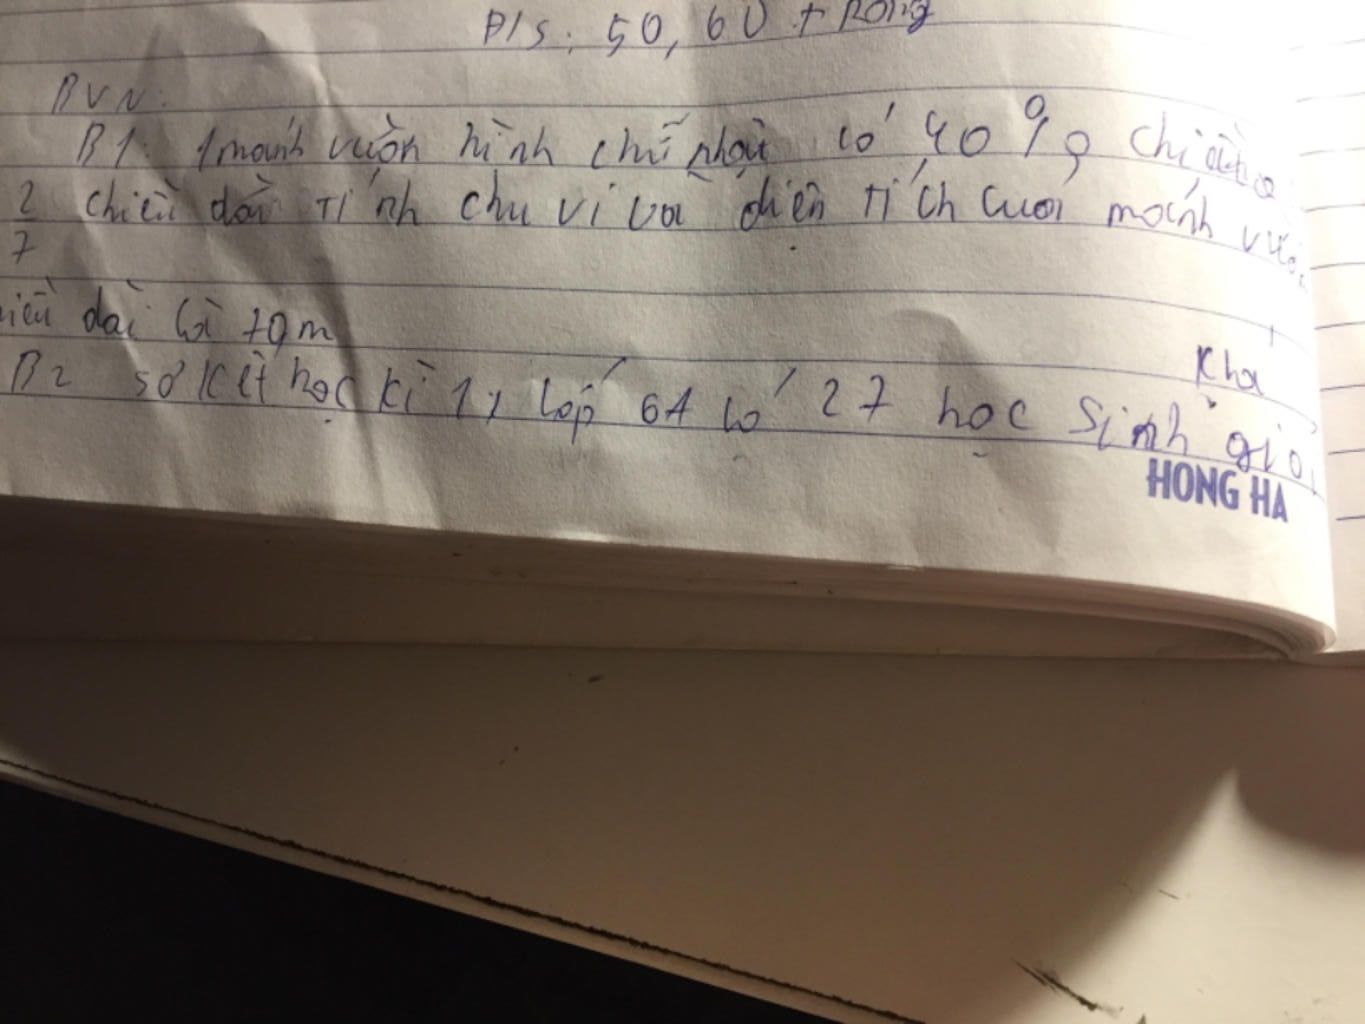 P/s: 50, 60 trồng
BVN:
B1: 1 mảnh vườn hình chữ nhật có 40%
2/7 chiều dài Tính chu vi và diện Tích cuả mảnh vườn
dài là 70m
Khá
B2 sơ kết học kì 1, lớp 6A có 27 học sinh giỏi
HONG HA